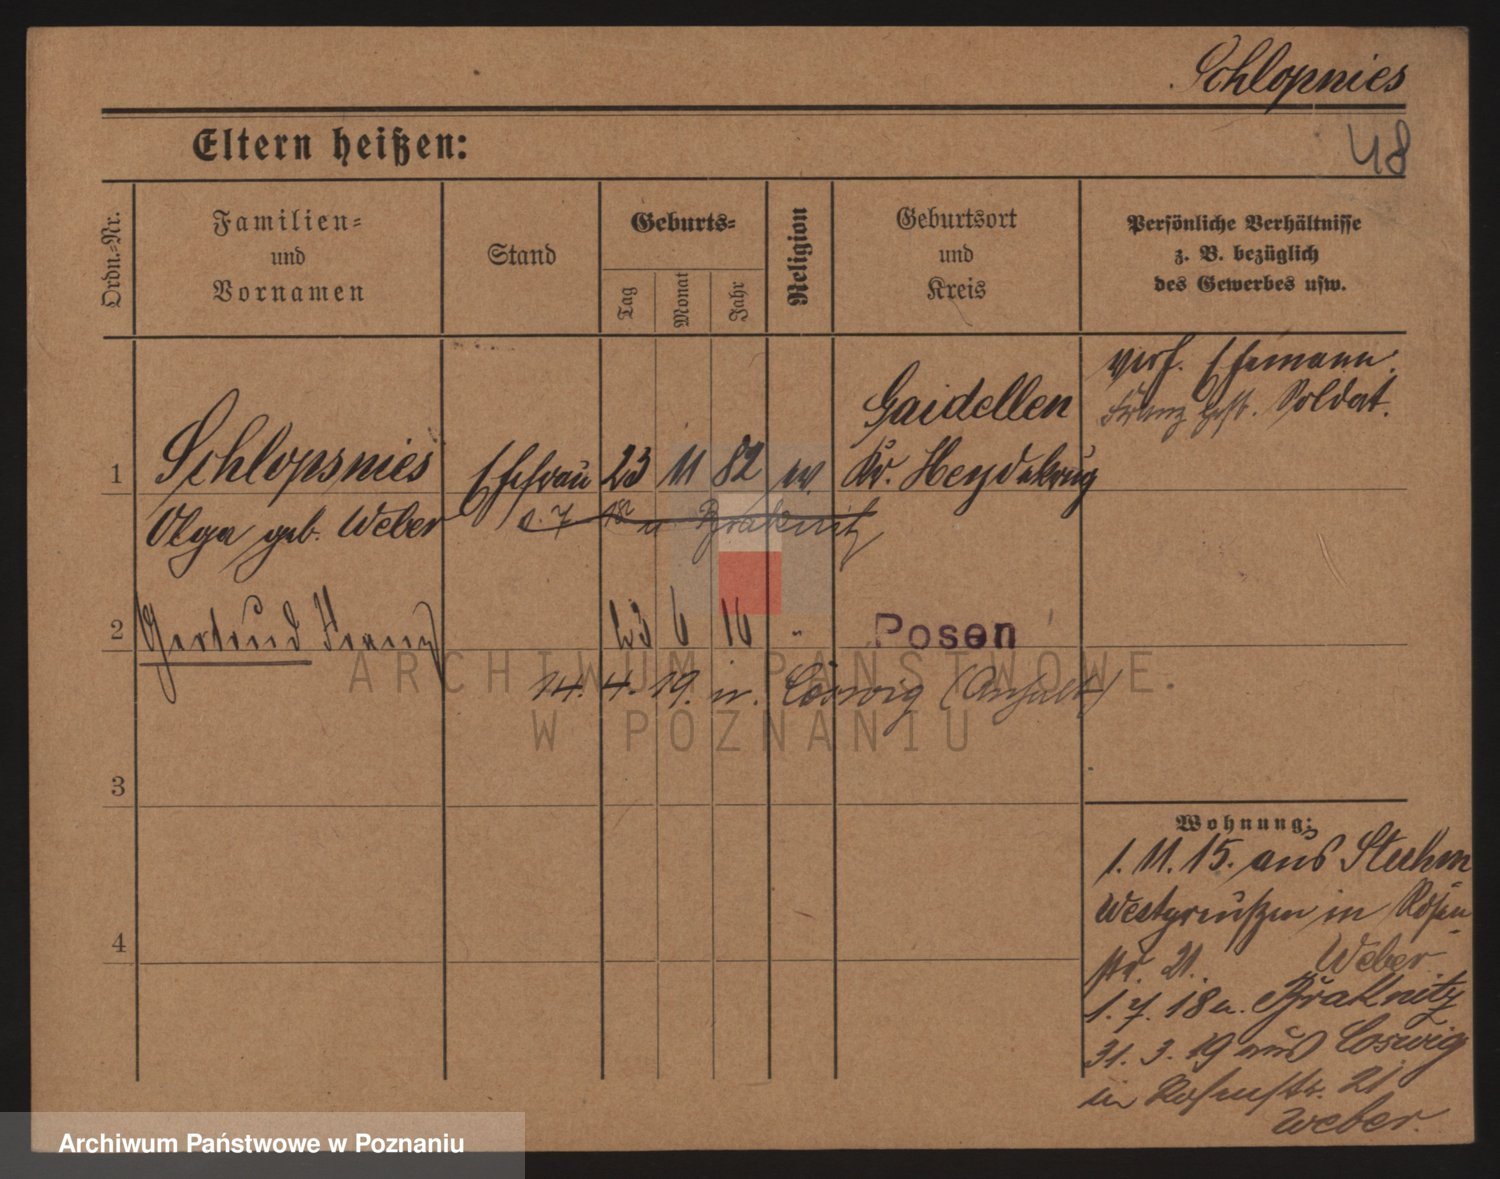 Schlopnies
Eltern heißen:
48
Ordn.-Nr.
Familien-
und
Vornamen
Stand
Geburts-
Tag
Monat
Jahr
Religion
Geburtsort
und
Kreis
Persönliche Verhältnisse
z. B. bezüglich
des Gewerbes usw.
verh. Ehemann
Franz Soldat.
1
Schlopsnies
Ehefrau 23 11 82 ev.
Gaidellen
Kr. Heydekrug
Olga geb. Weber
2
Gertrud Franz
23 6 16 "
Posen
14. 4. 19. n. Coswig (Anhalt)
3
4
Wohnung:
1. 11. 15. aus Stuhm
Westpreußen in Rosen
str. 21. Weber
1. 7. 18 n.
31. 3. 19 aus Coswig
in Rosenstr. 21
Weber.
ARCHIWUM PAŃSTWOWE
W POZNANIU
Archiwum Państwowe w Poznaniu